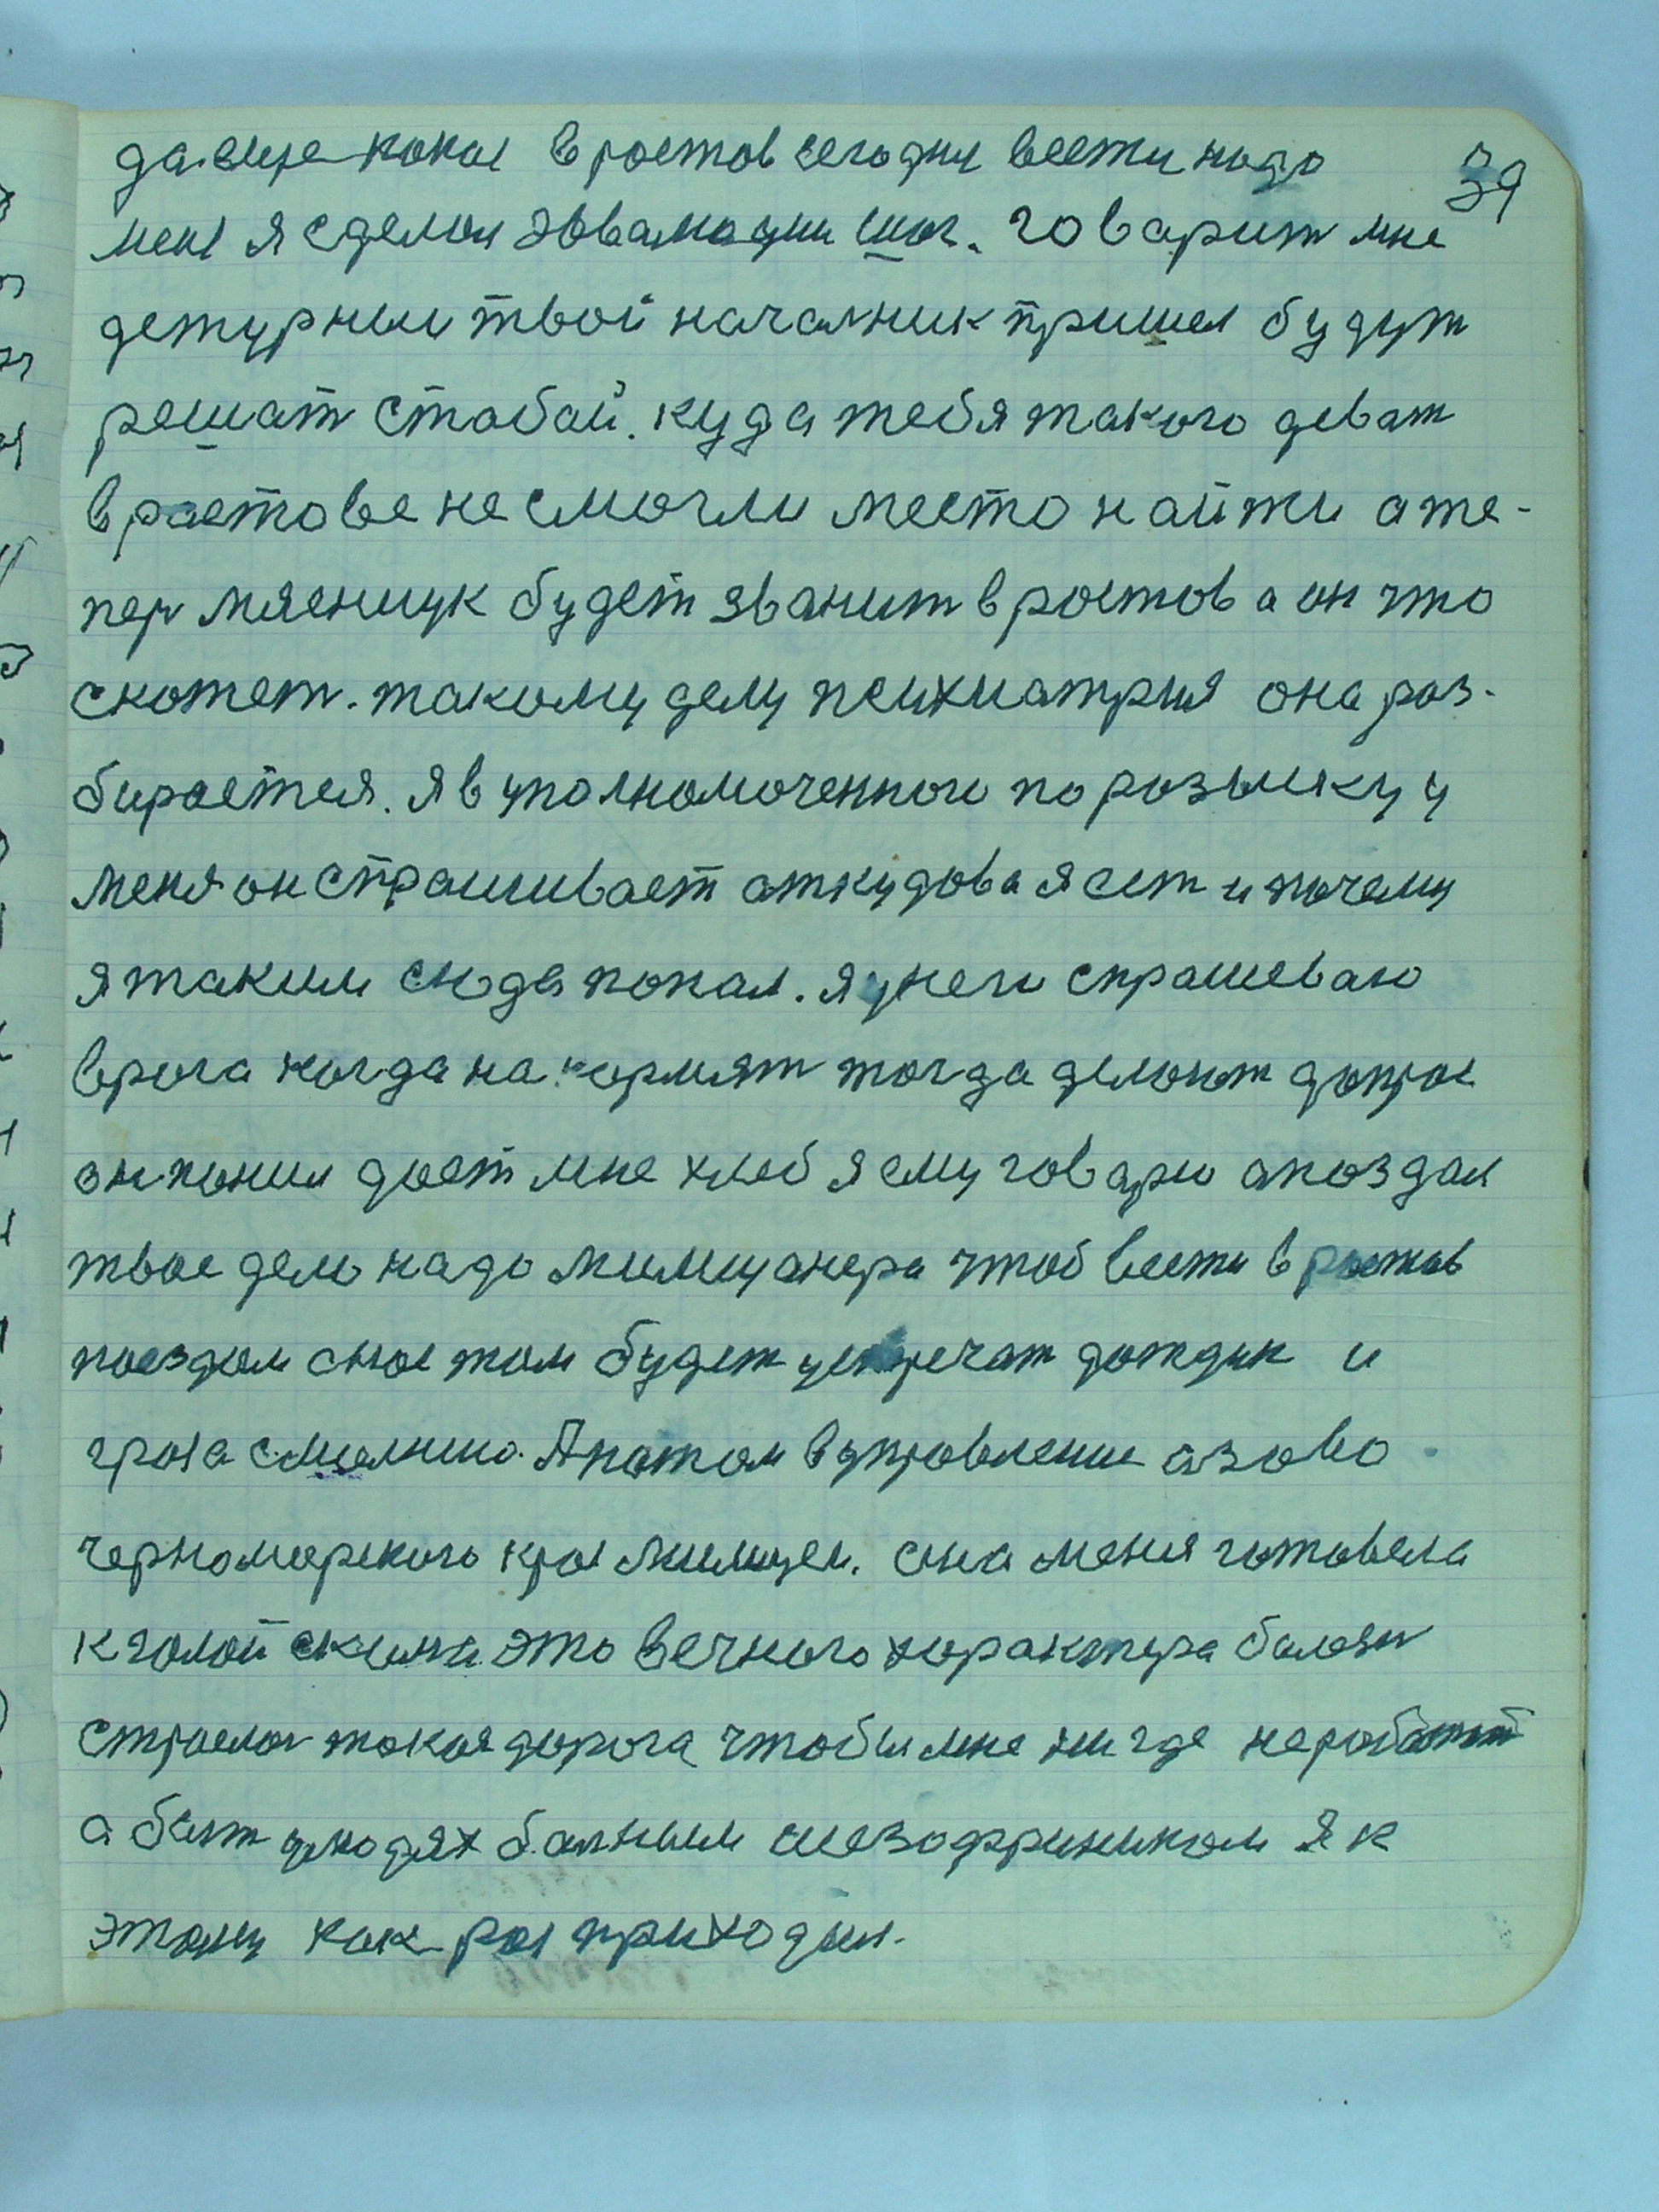 да еще какая в ростов сегодня вести надо 39
меня я сделал эвамадин шаг. говарит мне
дежурным твой началник пришел будут
решат стобай. куда тебя такого деват
в растове не смогли место найти а те-
пер мясищук будет званит в ростов а он что
скажет. такому делу психиатрия она раз-
бирается. я в уполномоченного по розыску у
меня он спрашивает аткудова я ест и почему
я таким сюда попал. я у него спрашеваю
врага когда на кормят тогда делают допрос
он понял дает мне хлеб я ему говарю апоздал
твое дело надо милицанера чтоб вести в ростов
поездом там будет устречат дождик и
гроза смолнию. А патом в управление азово
черноморского края милицеи. она меня готовела
к голой это вечного характера болезн
строелас такая дорога чтобы мне ни где не работат
а быт улюдях балным шезофриником я к
этому как раз приходил.